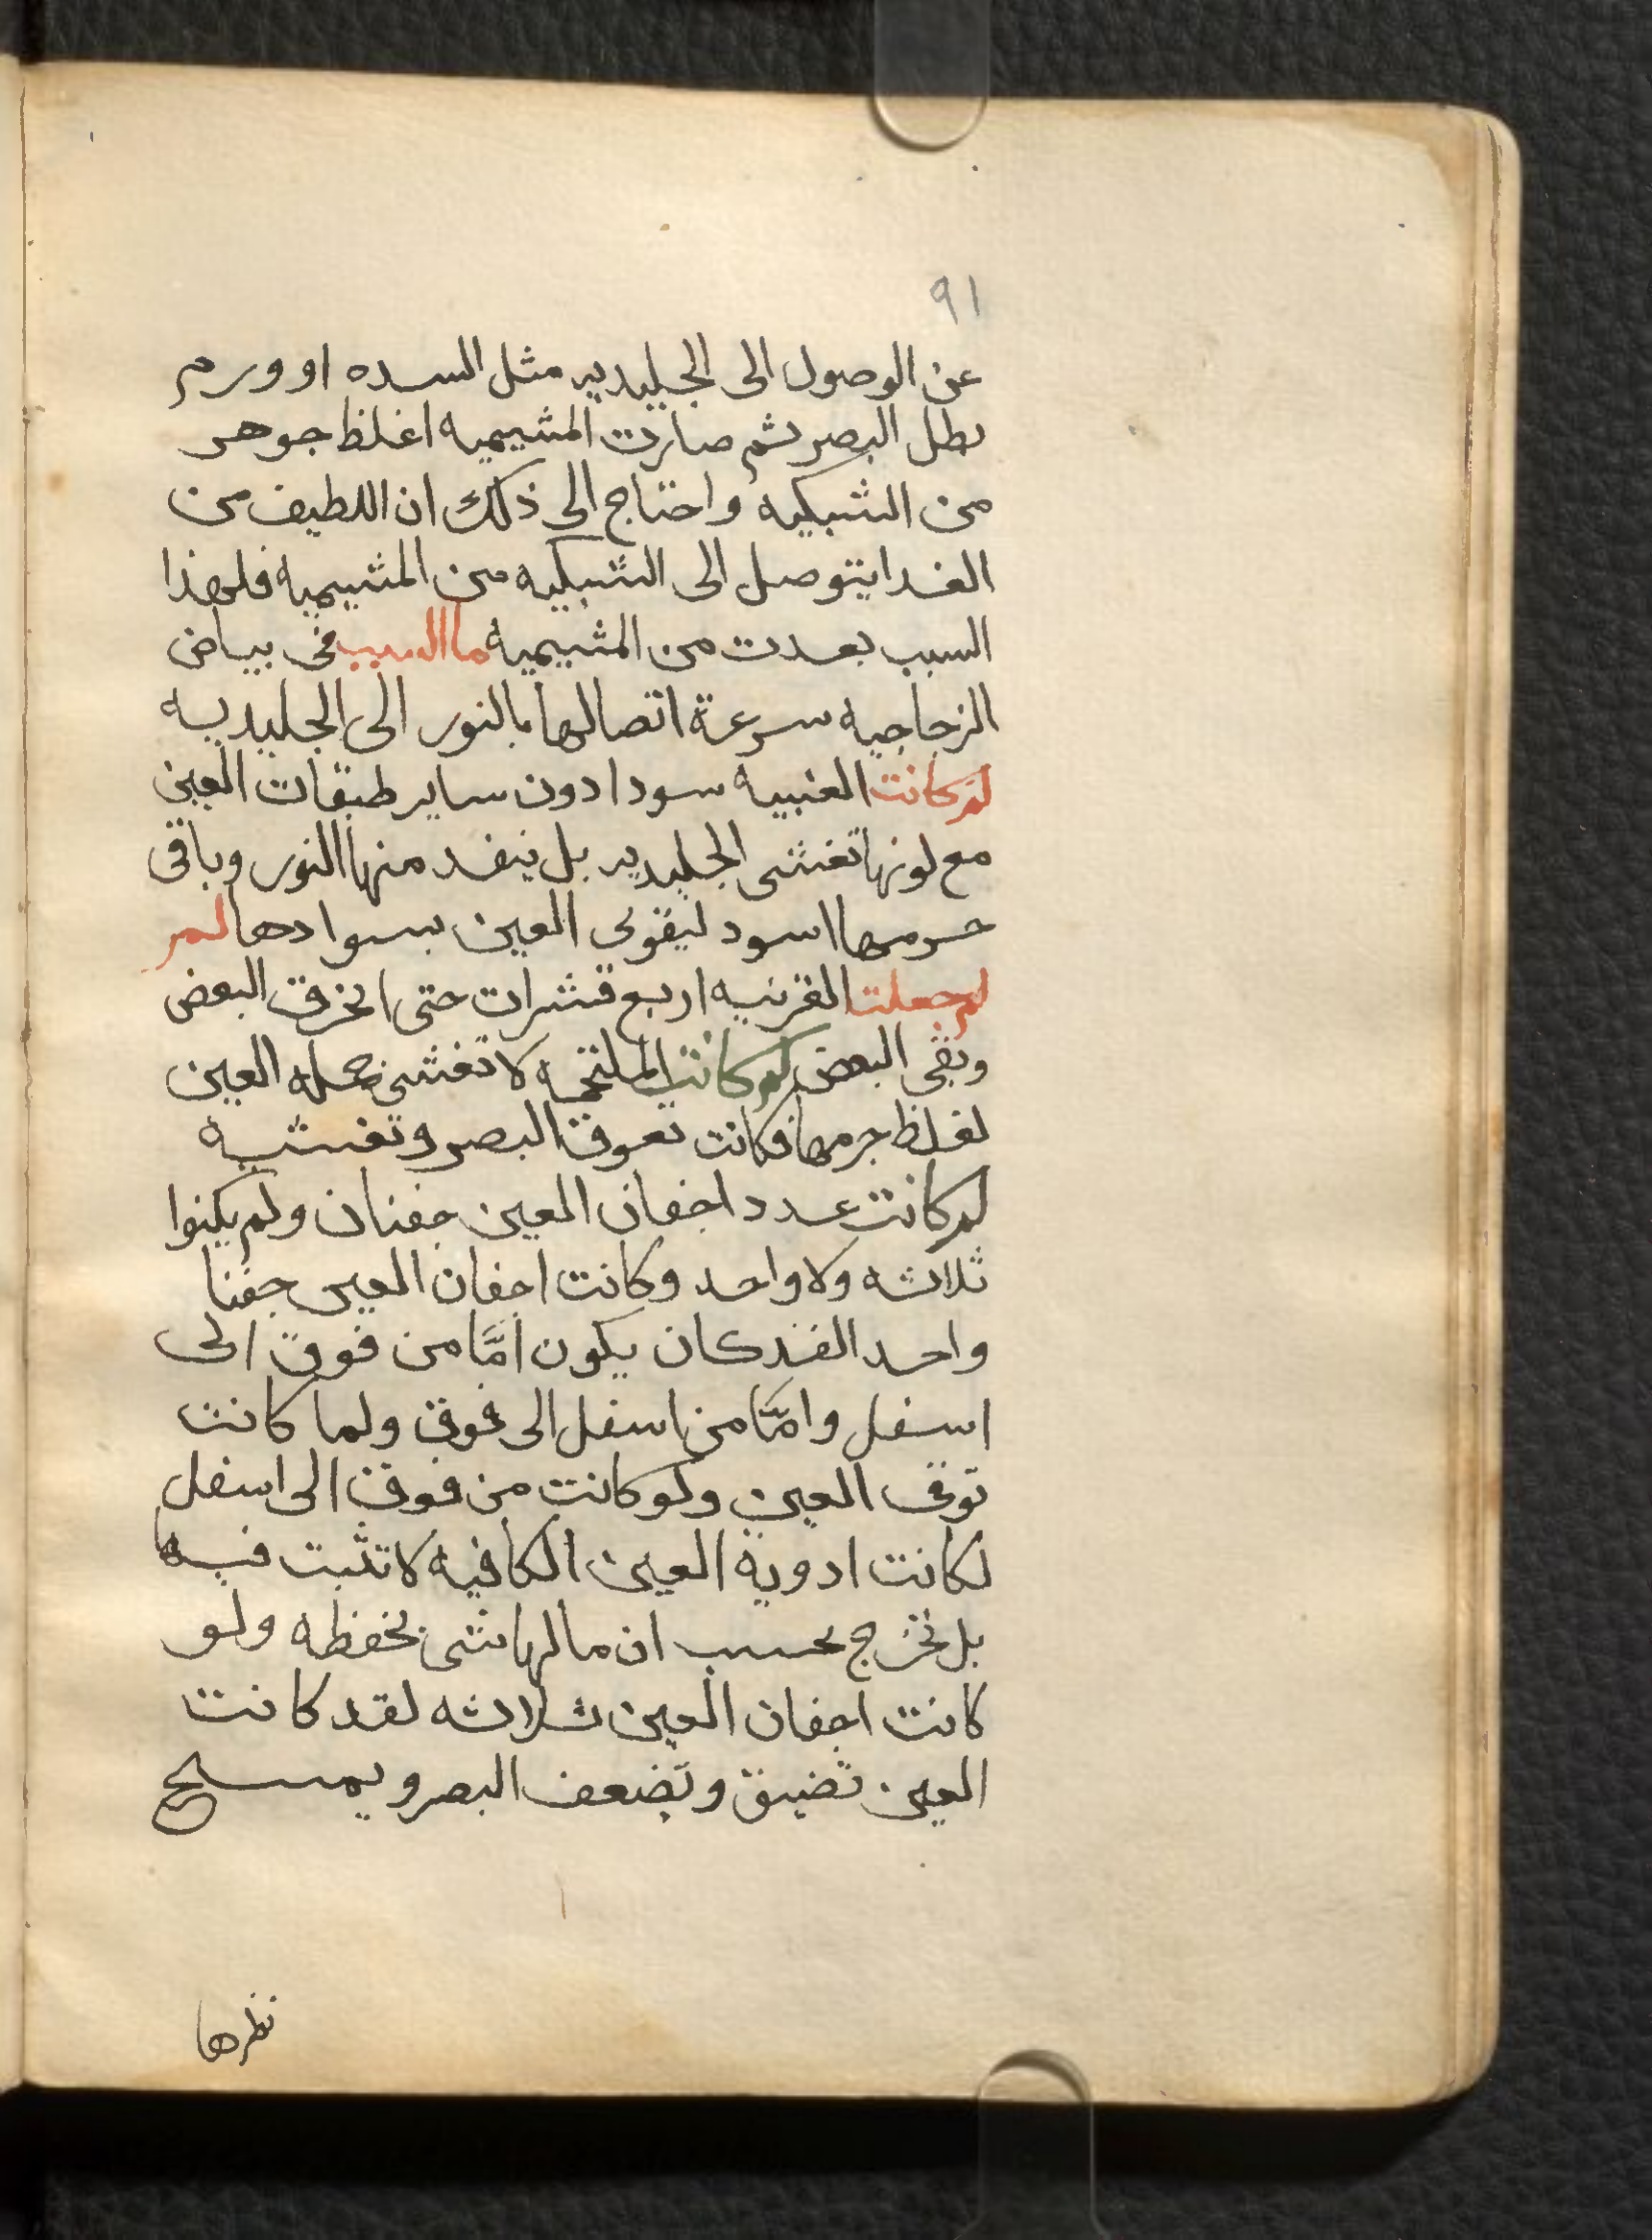 ٩١
عن الوصول الى الجليديه مثل السده او ورم
بطل البصر ثم صارت المشيميه اغلظ جوهر
من الشبكيه واحتاج الى ذلك ان اللطيف من
الغدا يتوصل الى الشبكيه من المشيميه فلهذا
السبب بعدت من المشيميه ما السبب في بياض
الزجاجيه سرعة اتصالها بالنور الى الجليديه
لم كانت العنبيه سودا دون ساير طبقات العين
مع لونها تغشى الجليديه بل ينفد منها النور وباقى
جرمها اسود ليقوى العين بسوادها لم
لم جعلت القرنيه اربع قشرات حتى انخرق البعض
وبقى البعض لم كانت الملتحمه لا تغشى جمله العين
لغلظ جرمها فكانت تعوق البصر وتغشيه
لم كانت عدد اجفان العين جفنان ولم يكنوا
ثلاثه ولا واحد وكانت اجفان العين جفنا
واحد القد كان يكون امَّا من فوق الى
اسفل وامَّا من اسفل الى فوق ولما كانت
توقى العين ولو كانت من فوق الى اسفل
لكانت ادوية العين الكافيه لا تثبت فيها
بل تخرج بحسب ان مالها شى يحفظه ولو
كانت اجفان العين ثلاثه لقد كانت
العين تضيق وتضعف البصر ويمسح
نظرها